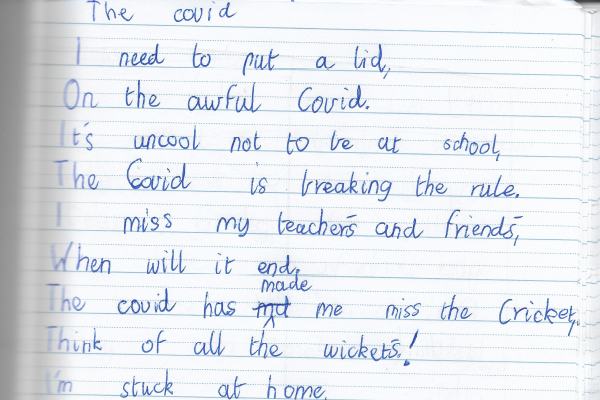 The covid
I need to put a lid,
On the awful Covid.
It's uncool not to be at school,
The Covid is breaking the rule.
I miss my teachers and friends,
When will it end.
made
The covid has me miss the Cricket,
Think of all the wickets!
I'm stuck at home,